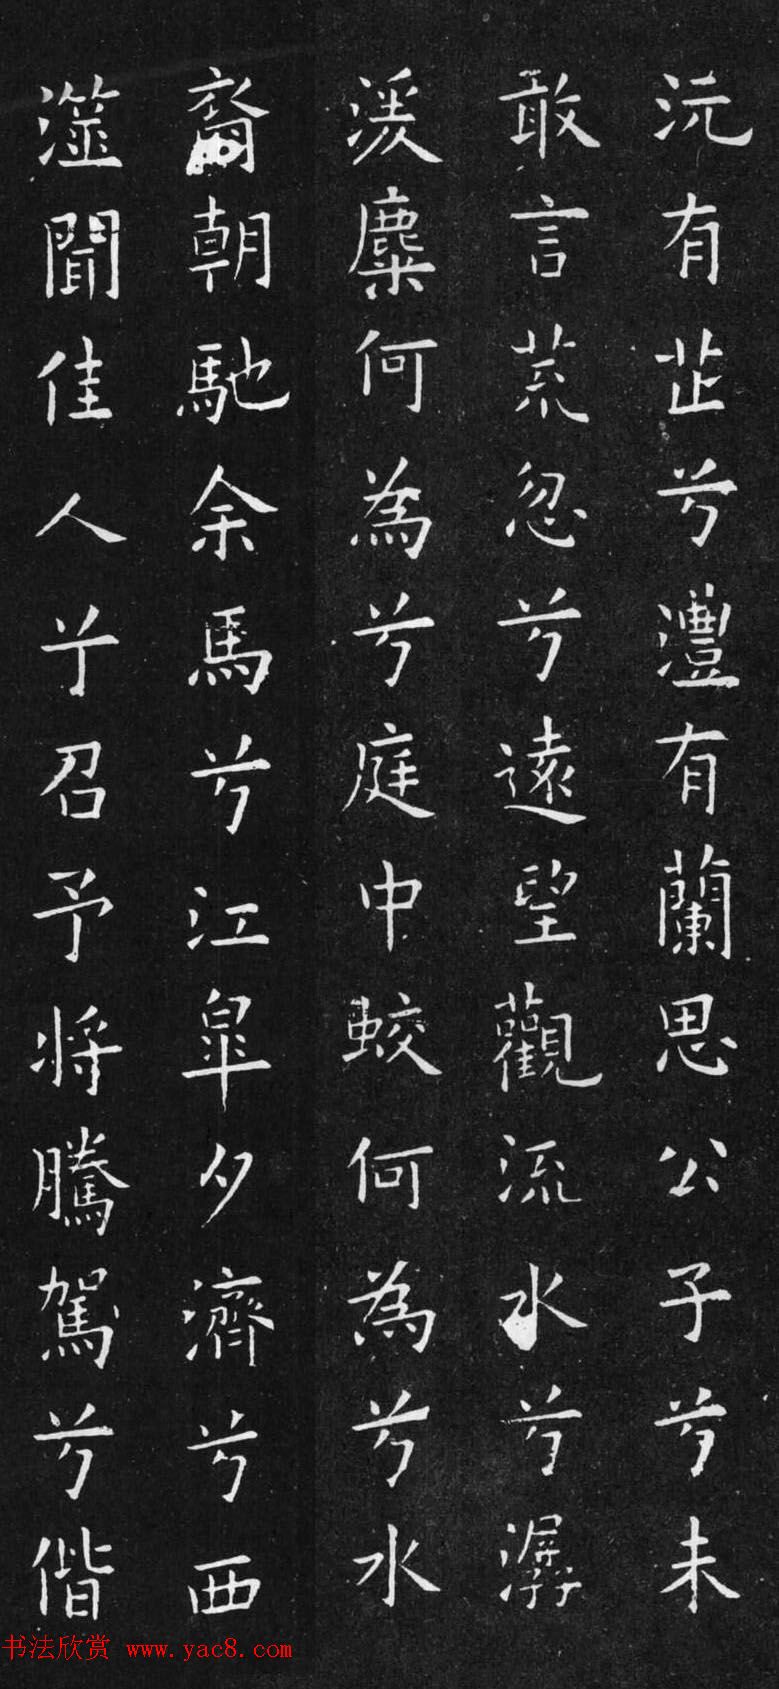 沅有芷兮澧有蘭思公子兮未
敢言荒忽兮遠望觀流水兮潺
湲麋何為兮庭中蛟何為兮水
裔朝馳余馬兮江皐夕濟兮西
澨聞佳人兮召予将騰駕兮偕
书法欣赏 www.yac8.com